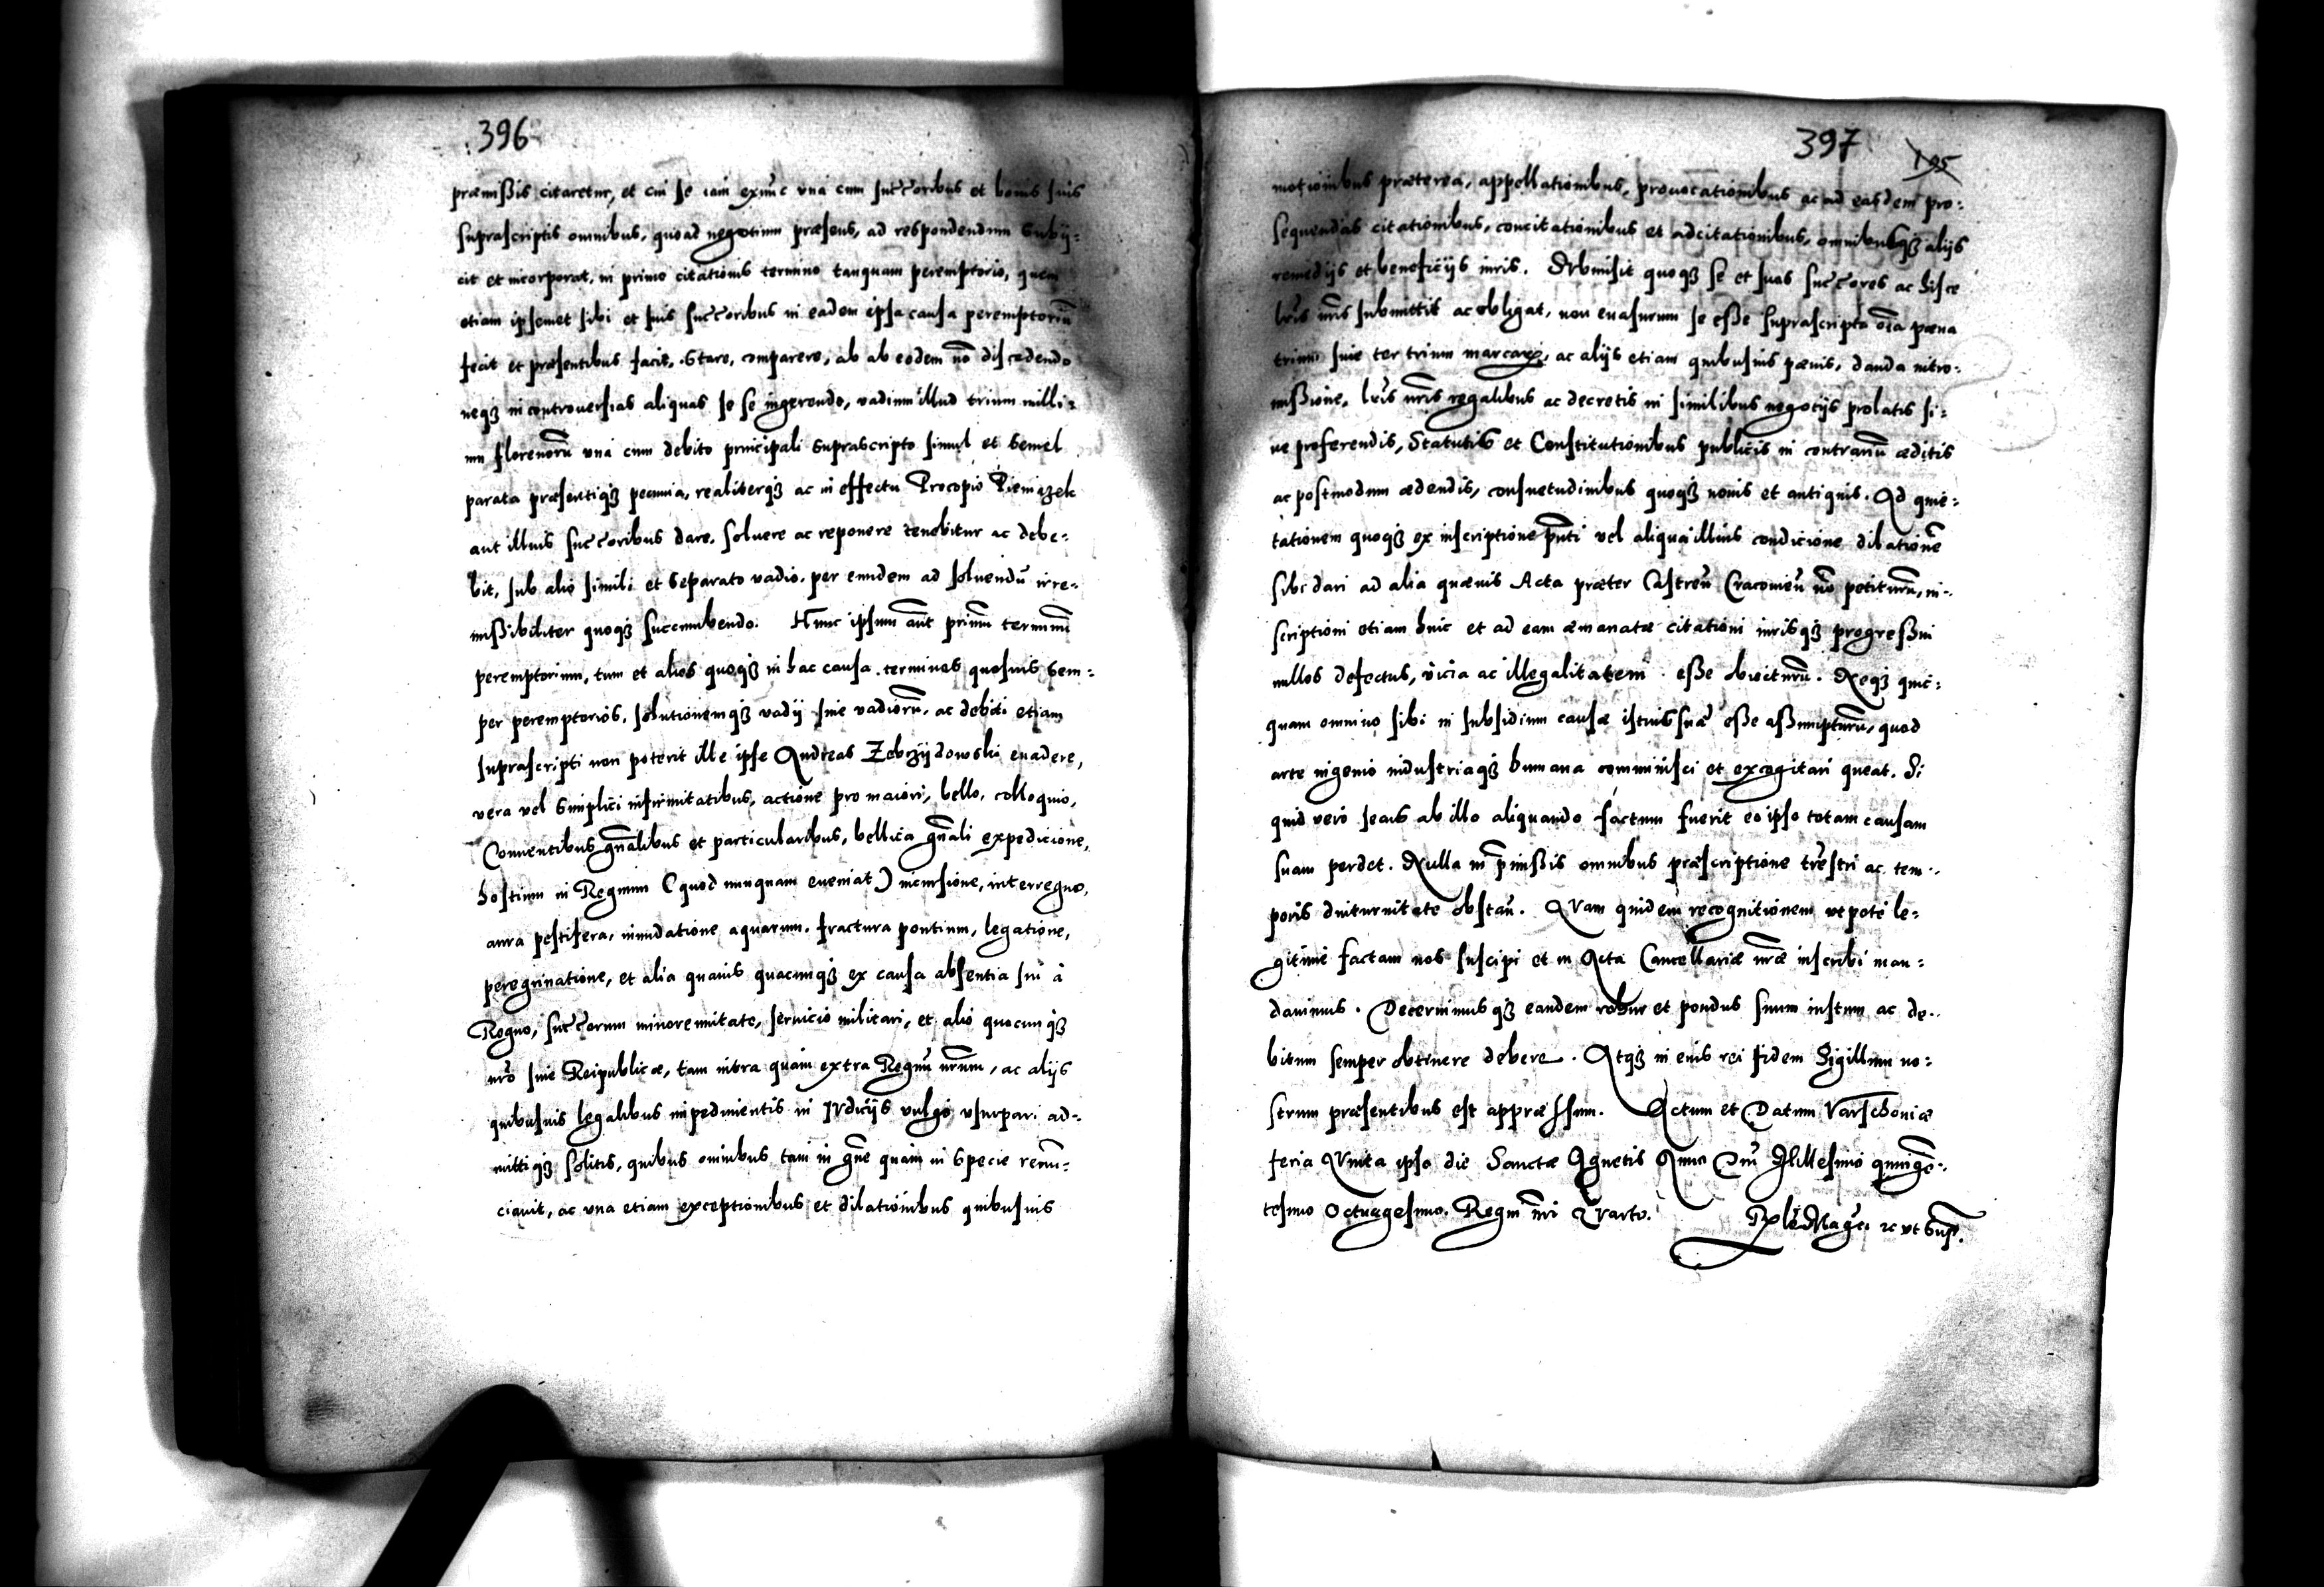 396
præmißis citaretur, et cui se iam exnũc vna cum succ̃oribus et bonis suis
suprascriptis omnibus, quoad negotium præsens, ad respondendum subij=
cit et incorporat, in primo citationis termino tanquam peremptorio, quem
etiam ipsemet sibi et suis succ̃oribus in eadem ipsa causa peremptoriũ
fecit et præsentibus facit, stare, comparere, ab ab eodem nõ discedendo
neqз in controuersias aliquas se se ingerendo, vadium illud trium milli=
um florenorũ vna cum debito principali suprascripto simul et semel
parata præsentiqз pecunia, realiterqз ac in effectu Procopio Pieniązek
aut illius succ̃oribus dare, soluere ac reponere tenebitur ac debe=
bit, sub alio simili et separato vadio, per eundem ad soluendũ irre=
mißibiliter quoqз succumbendo. Hunc ipsum aũt primũ terminũ
peremptorium, tum et alios quoqз in hac causa terminos quosuis sem=
per peremptorios, solutionemqз vadij siue vadiorũ, ac debiti etiam
suprascripti non poterit ille ipse Andreas Zebrzydowski euadere,
vera vel simplici infirmitatibus, actione pro maiori, bello, colloquio,
Conuentibus gñalibus et particularibus, bellica gñali expedicione,
hostium in Regnum (quod nunquam eueniat) incursione, interregno,
aura pestifera, inundatione aquarum, fractura pontium, legatione,
peregrinatione, et alia quauis quacunqз ex causa absentia sui à
Regno, succ̃orum minorennitate, seruicio militari, et alio quocunqз
nr̃o siue Reipublicæ, tam intra quam extra Regnũ nr̃um, ac alijs
quibusuis legalibus impedimentis in Iudicijs vulgo vsurpari ad=
mittiqз solitis, quibus omnibus tam in gñe quam in specie renũ=
ciauit, ac vna etiam exceptionibus et dilationibus quibusuis
397
195
motionibus præterea, appellationibus, prouocationibus ac ad easdem pro=
sequendas citationibus, concitationibus et adcitationibus, omnibusqз alijs
remedijs et beneficijs iuris. Submisit quoqз se et suos succ̃ores ac hisce
lr̃is nr̃is submittit ac obligat, non euasurum se eße suprascripta oĩa pæna
trium siue ter trium marcarũ, ac alijs etiam quibusuis pænis, danda intro=
mißione, lr̃is nr̃is regalibus ac decretis in similibus negotijs prolatis si=
ue proferendis, Statutis et Constitutionibus publicis in contrariũ æditis
ac postmodum ædendis, consuetudinibus quoqз nouis et antiquis. Ad quie=
tationem quoqз ex inscriptione p̃nti vel aliqua illius condicione dilationẽ
sibi dari ad alia quæuis Acta præter Castreñ Cracouieñ nõ petiturũ, in=
scriptioni etiam huic et ad eam æmanatæ citationi iurisqз progreßui
nullos defectus, vicia ac illegalitatem eße obiecturũ. Neqз quic=
quam omnino sibi in subsidium causæ istius suæ eße aßumpturũ, quod
arte ingenio industriaqз humana comminisci et excogitari queat. Si
quid vero secus ab illo aliquando factum fuerit eo ipso totam causam
suam perdet. Nulla in p̃mißis omnibus præscriptione tr̃estri ac tem=
poris diuturnitate obstañ. Quam quidem recognitionem vtpote le=
gitime factam nos suscipi et in Acta Cancellariæ nr̃æ inscribi man=
dauimus. Decernimusqз eandem robur et pondus suum iustum ac de=
bitum semper obtinere debere. Atqз in eius rei fidem Sigillum no=
strum præsentibus est appræssum. Actum et Datum Varschouiæ
feria Quinta ipso die Sanctæ Agnetis Anno Dñi Millesimo quingẽ=
tesimo Octuagesimo. Regni nr̃i Quarto.
Rel. Mag̃ci zc vt supr̃.